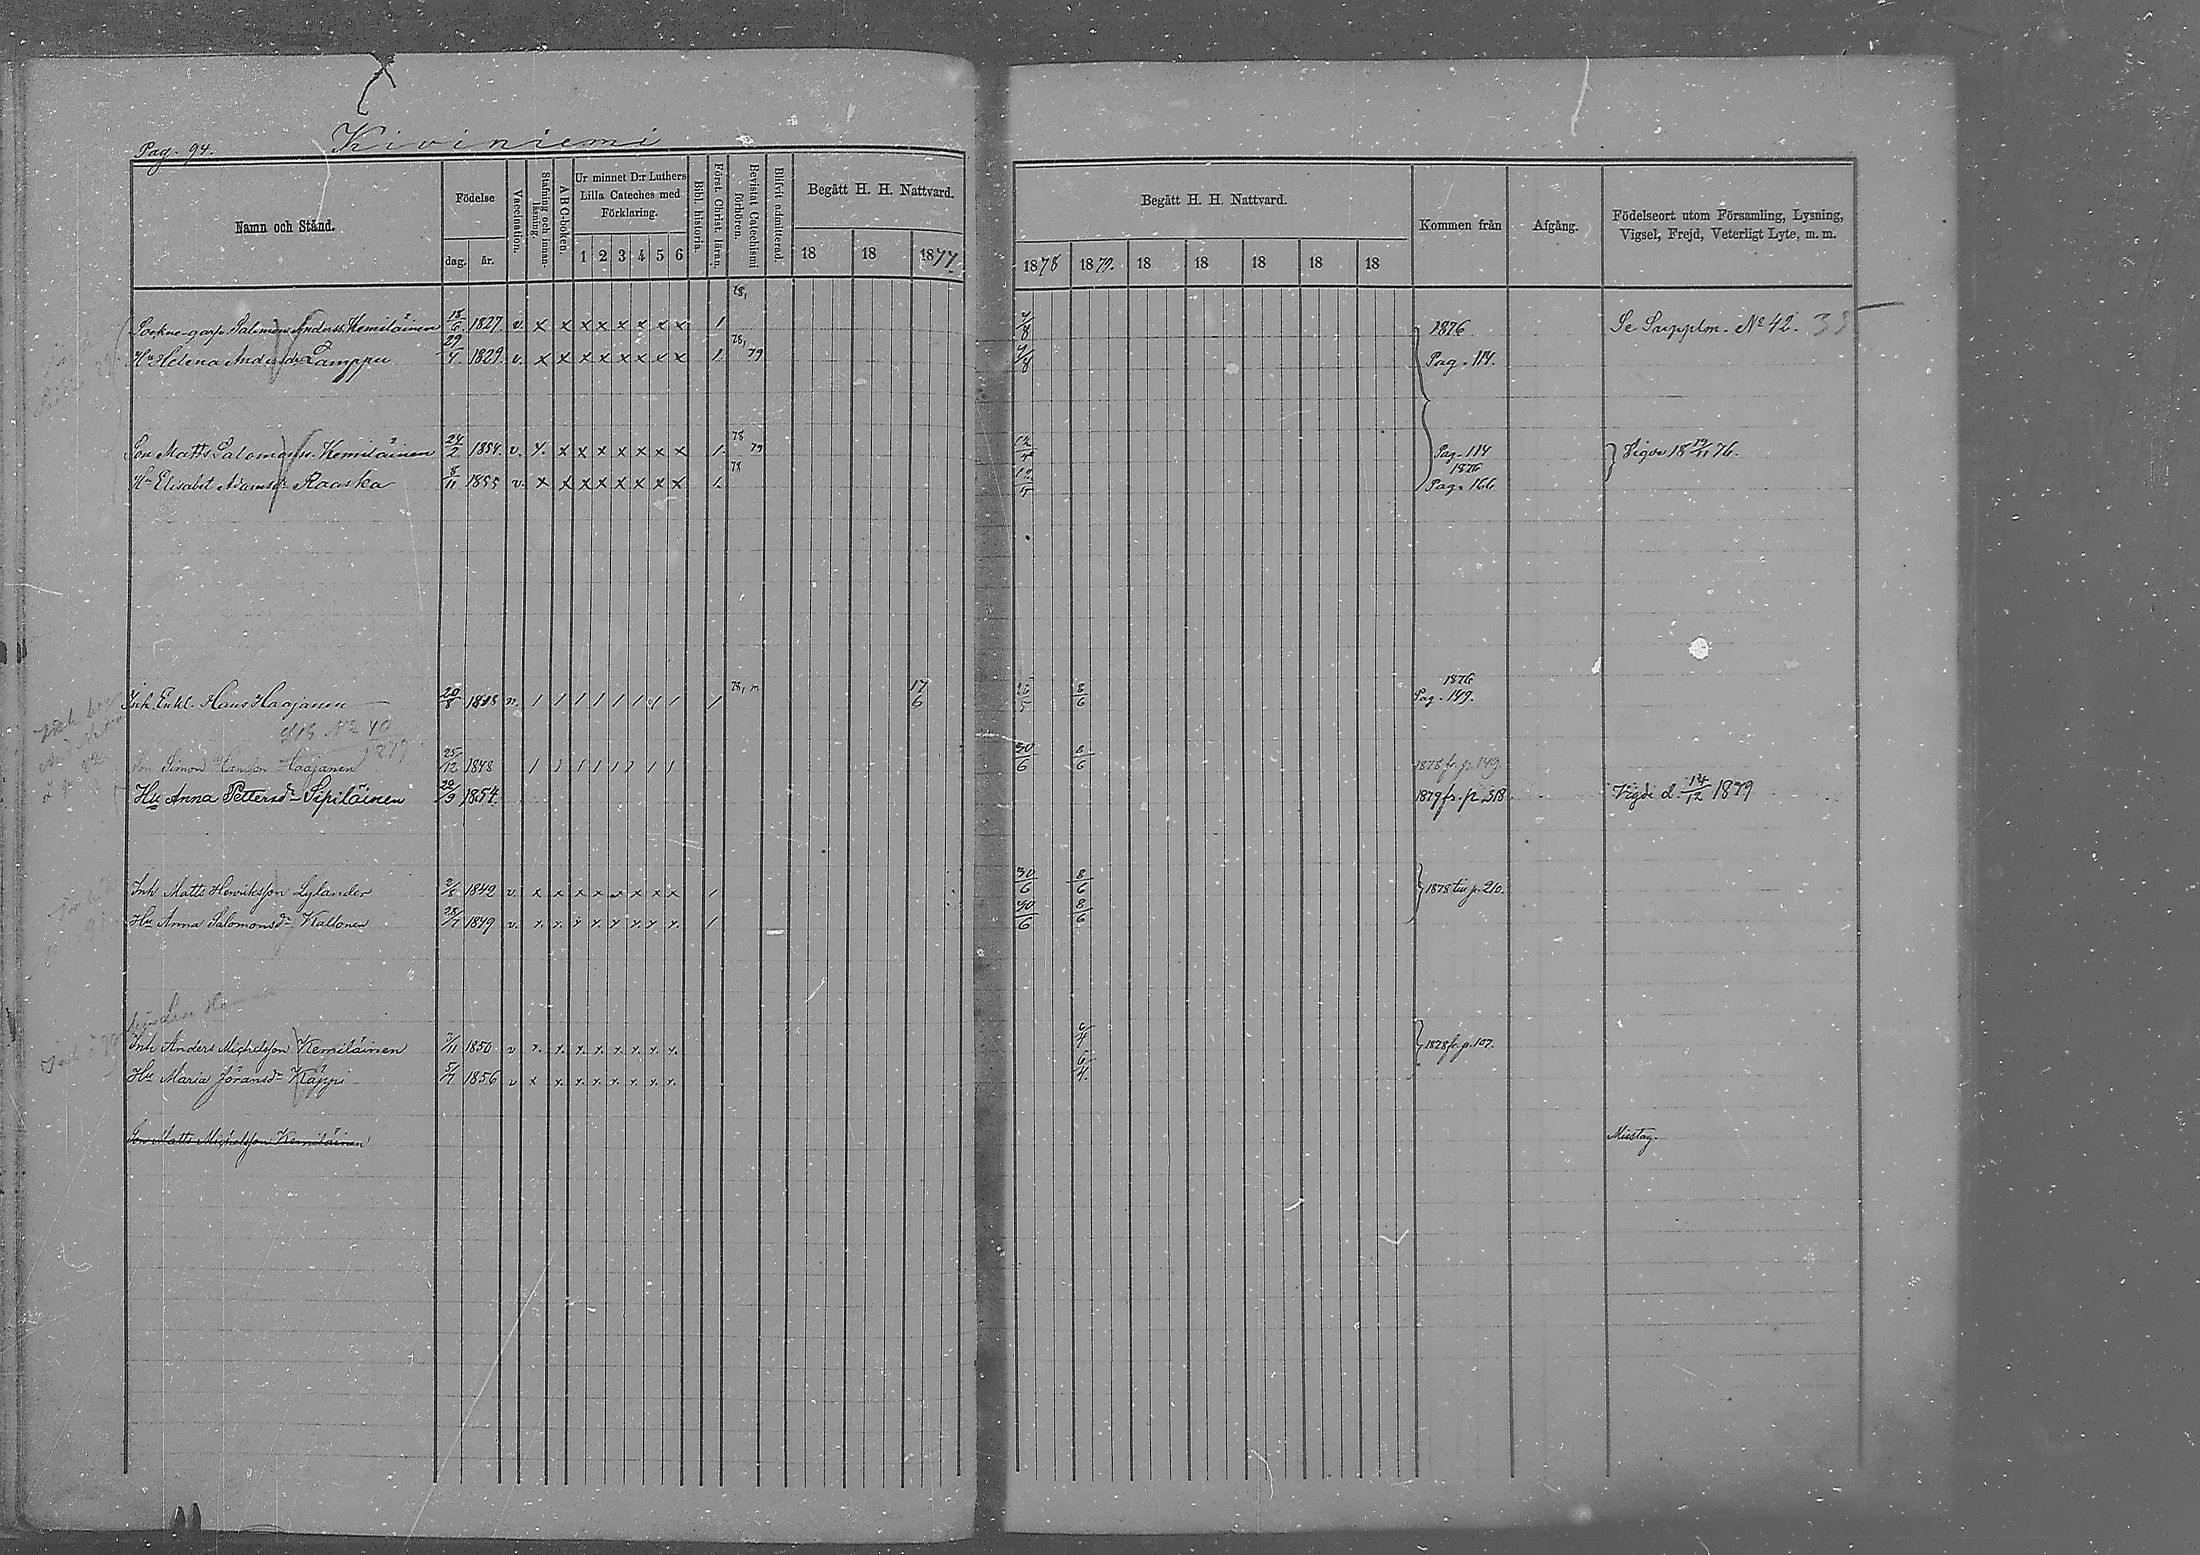 Pag. 94. Kiviniemi
Namn och Stånd. Födelse Vaccination. Stafning och innanläsning. ABC-boken. Ur minnet D:r Luthers Lilla Cateches med Förklaring. Bibl. historia. Först. Christ. läran. Bevistat Catechismi förhören. Blifvit admitterad Begått H. H. Nattvard. Begått H. H. Nattvard. Kommen från Afgång. Födelseort utom Församling, Lysning, Vigsel, Frejd, Veterligt Lyte, m. m.
dag. år. 1 2 3 4 5 6 18 18 1877. 1878 1879. 18 18 18 18 18
78,
Sockne-garfv. Salomon Anderss. Kemiläinen 18/6 1827. v. x x x x x x x x 1 4/8 1876 Se Supplm. No 42.
78,
Hu Helena Andersdr Lamppu 29/4 1829. v. x x x x x x x x 1. 79 4/8 Pag. 114.
78
Son Matts Salomonss. Kemiläinen 24/2 1854. v. x x x x x x x x 1. 79 Pag. 114 Vigde 18 19/11 76.
78 1876
Hu Elisabet Adamsdr Raaska 8/11 1855 v. x x x x x x x x 1. Pag. 166
78, 17/6 1876
Inh. Enkl. Hans Haajanen 20/8 1818 n. 1 1 1 1 1 1 1 1 1 8/6 Pag. 149.
No 40
1879
Son Simon Hansson Haajanen 25/12 1848 1 1 1 1 1 1 1 1 30/6 8/6 1878 fr. p. 149.
Hu Anna Pettersdr Sipiläinen 20/9 1854. 1879 fr. p. 318 Vigde d. 14/12 1879
Inh Matts Henriksson Lylander 2/8 1849 v. x x x x x x x x 1 30/6 8/6 1878 fr. p. 210.
Hu Anna Salomonsdr Kallonen 28/7 1849 v. x x x x x x x x. 1 30/6 8/6
Inh Anders Michelsson Kemiläinen 7/11 1850 v x. x. x. x. x. x. x. x. 6/4 1878 fr. p. 107.
Hu Maria Jöransdr Käppi 5/7 1856 v x x x. x. x. x. x. x. 6/4.
Son Matts Michelsson Kemiläinen Misstag.